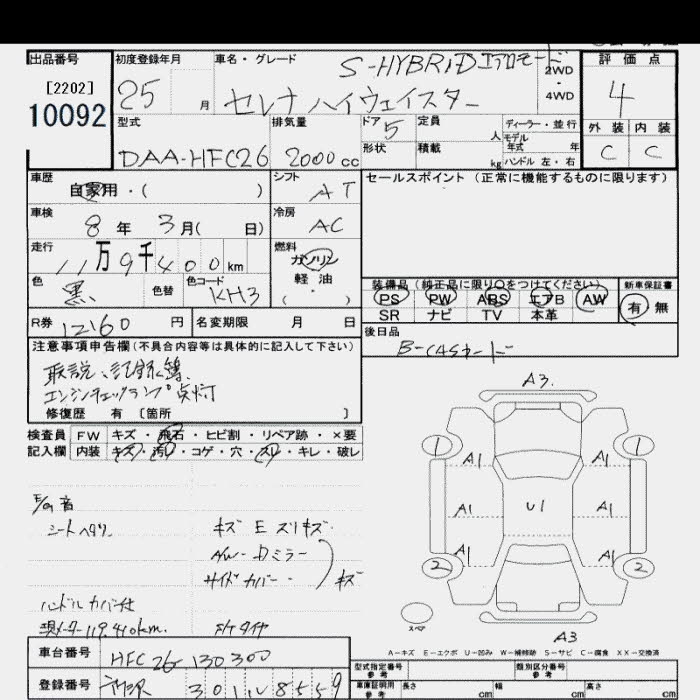 出品番号 初度登録年月 車名・グレード 評価点
[2202]
10092
25 月
S-HYBRID エアロモード
セレナ ハイウェイスター
2WD
・
4WD
4
型式 排気量 ドア 定員 ディーラー・並行 外装 内装
DAA-HFC26 2000cc 5 人 モデル年式 年
形状 積載 kg ハンドル 左・右 C C
車歴 シフト セールスポイント (正常に機能するものに限ります)
自家用・( ) AT
車検 冷房
8年 3月( 日) AC
走行 燃料
11万9千400km ガソリン
軽油
( ・ )
色 色替 色コード
黒 KH3
装備品 (純正品に限り○をつけてください) 新車保証書
PS PW ABS エアB AW 有 無
SR ナビ TV 本革
R券 12160円 名変期限 月 日 後日品
B-CASカード
注意事項申告欄(不具合内容等は具体的に記入して下さい)
取説、記録簿、
エンジンチェックランプ点灯
修復歴 有 [箇所 ]
検査員 FW キズ・飛石・ヒビ割・リペア跡・×要
記入欄 内装 キズ・汚れ・コゲ・穴・スリ・キレ・破レ
E/g 音
シートヘタリ キズ E ズリキズ
A/W・Dミラー
サイドカバー・ キズ
ハンドルカバー付
現メーター119,410km.
A3.
1 1
A1 A1
A1 U1 A1
A1 A1
2 2
スペア
A3
A-キズ E-エクボ U-凹み W-補修跡 S-サビ C-腐食 XX-交換済
車台番号 HFC26-130300
登録番号 301 8559
型式指定番号 参考 類別区分番号 参考
車庫証明用 参考 長さ cm 幅 cm 高さ cm